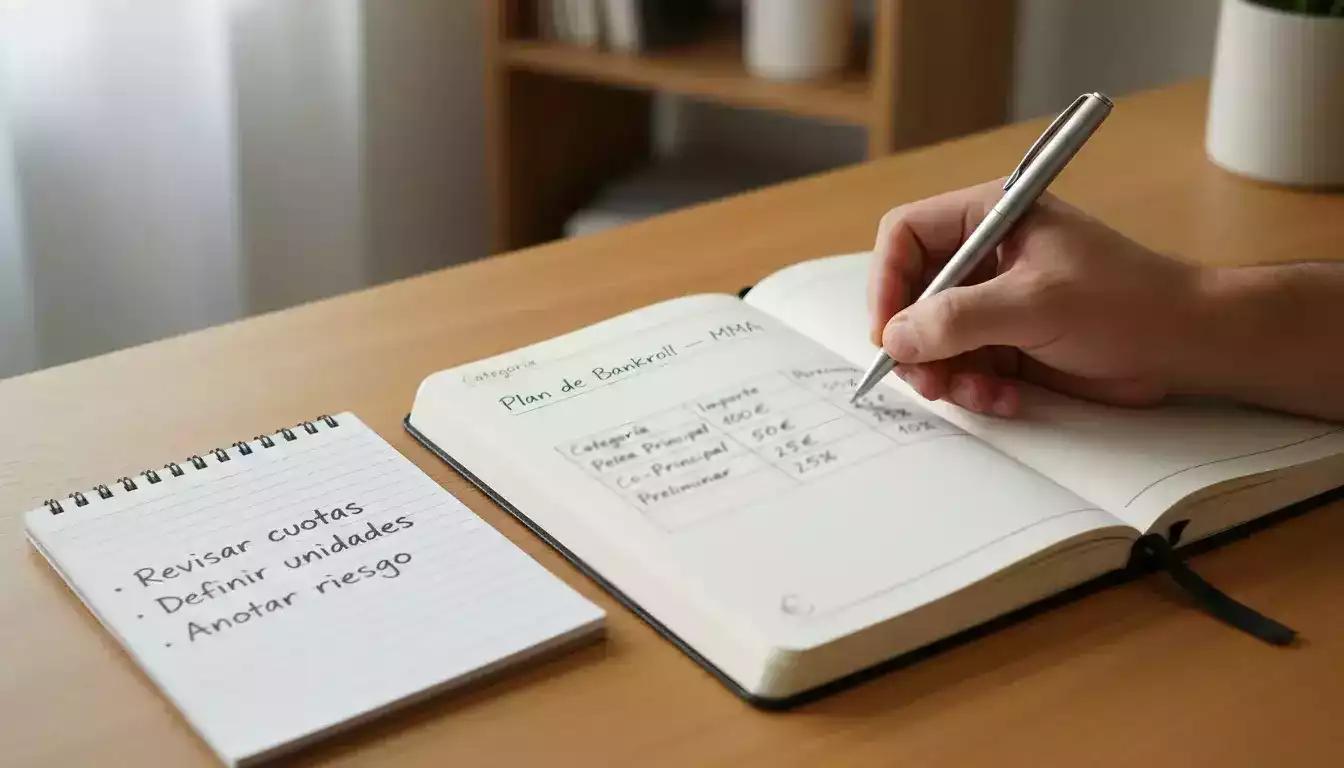 Categoría
Plan de Bankroll — MMA
Categoría Importe
Pelea Principal 100 €
Co-Principal 50 €
Preliminar 25 € 25%
25% 10%
· Revisar cuotas
· Definir unidades
· Anotar riesgo